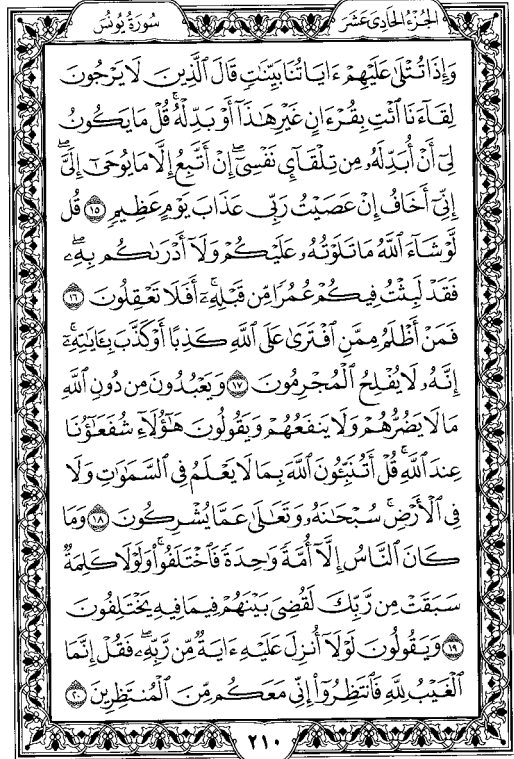 الجزء الحادي عشر
سورة يونس
وَإِذَا تُتْلَىٰ عَلَيْهِمْ ءَايَاتُنَا بَيِّنَٰتٍ قَالَ ٱلَّذِينَ لَا يَرْجُونَ
لِقَآءَنَا ٱئْتِ بِقُرْءَانٍ غَيْرِ هَٰذَآ أَوْ بَدِّلْهُ ۚ قُلْ مَا يَكُونُ
لِىٓ أَنْ أُبَدِّلَهُۥ مِن تِلْقَآئِ نَفْسِىٓ ۖ إِنْ أَتَّبِعُ إِلَّا مَا يُوحَىٰٓ إِلَىَّ ۖ
إِنِّىٓ أَخَافُ إِنْ عَصَيْتُ رَبِّى عَذَابَ يَوْمٍ عَظِيمٍ ١٥ قُل
لَّوْ شَآءَ ٱللَّهُ مَا تَلَوْتُهُۥ عَلَيْكُمْ وَلَآ أَدْرَىٰكُم بِهِۦ ۖ
فَقَدْ لَبِثْتُ فِيكُمْ عُمُرًا مِّن قَبْلِهِۦٓ ۚ أَفَلَا تَعْقِلُونَ ١٦
فَمَنْ أَظْلَمُ مِمَّنِ ٱفْتَرَىٰ عَلَى ٱللَّهِ كَذِبًا أَوْ كَذَّبَ بِـَٔايَٰتِهِۦٓ ۚ
إِنَّهُۥ لَا يُفْلِحُ ٱلْمُجْرِمُونَ ١٧ وَيَعْبُدُونَ مِن دُونِ ٱللَّهِ
مَا لَا يَضُرُّهُمْ وَلَا يَنفَعُهُمْ وَيَقُولُونَ هَٰٓؤُلَآءِ شُفَعَٰٓؤُنَا
عِندَ ٱللَّهِ ۚ قُلْ أَتُنَبِّـُٔونَ ٱللَّهَ بِمَا لَا يَعْلَمُ فِى ٱلسَّمَٰوَٰتِ وَلَا
فِى ٱلْأَرْضِ ۚ سُبْحَٰنَهُۥ وَتَعَٰلَىٰ عَمَّا يُشْرِكُونَ ١٨ وَمَا
كَانَ ٱلنَّاسُ إِلَّآ أُمَّةً وَٰحِدَةً فَٱخْتَلَفُوا۟ ۚ وَلَوْلَا كَلِمَةٌ
سَبَقَتْ مِن رَّبِّكَ لَقُضِىَ بَيْنَهُمْ فِيمَا فِيهِ يَخْتَلِفُونَ
١٩ وَيَقُولُونَ لَوْلَآ أُنزِلَ عَلَيْهِ ءَايَةٌ مِّن رَّبِّهِۦ ۖ فَقُلْ إِنَّمَا
ٱلْغَيْبُ لِلَّهِ فَٱنتَظِرُوٓا۟ إِنِّى مَعَكُم مِّنَ ٱلْمُنتَظِرِينَ ٢٠
٢١٠